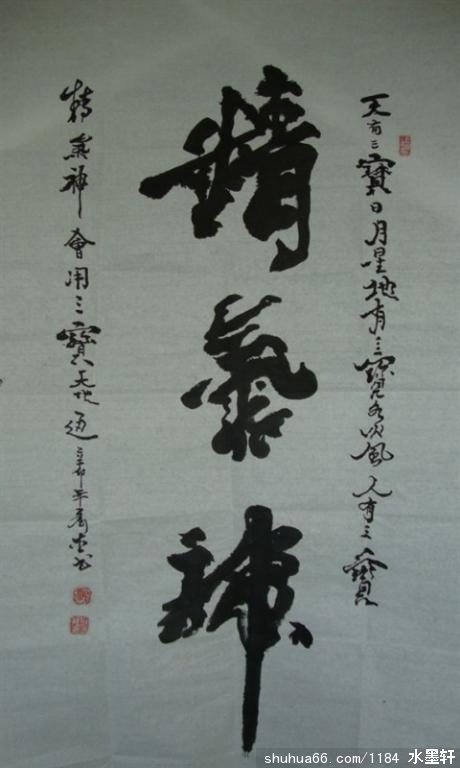 天有三寶日月星地有三寶水火風人有三寶
精氣神
精氣神會用三寶天地通辛卯年
shuhua66.com/1184 水墨轩